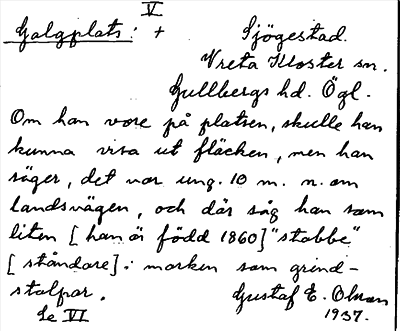 V
Galgplats: + Sjögestad.
Vreta Kloster sn.
Gullbergs hd. Ögl.
Om han vore på platsen, skulle han
kunna visa ut fläcken, men han
säger, det var ung. 10 m. n. om
landsvägen, och där såg han som
liten [han är född 1860] "stabbe"
[ståndare] i marken som grind-
stolpar.
Gustaf E. Olsson
Se VI 1937.